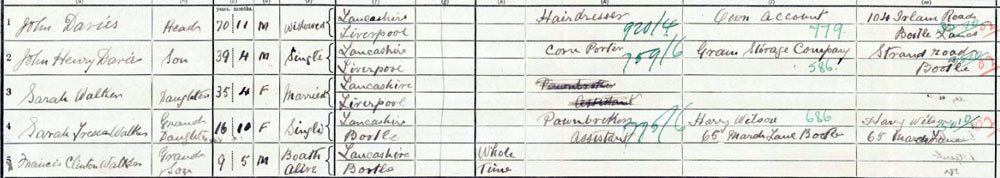 years. months.
1 John Davies Head 70 11 M Widowed Lancashire Hairdresser 920/4 Own Account 104 Irlam Road
Liverpool 779 Bootle Lancs
2 John Henry Davies Son 39 4 M Single Lancashire Corn Porter 759/6 Grain Storage Company Strand road
Liverpool 586 Bootle
3 Sarah Walker Daughter 35 4 F Married Lancashire Pawnbroker
Liverpool Assistant
4 Sarah Walker Grand 16 10 F Single Lancashire Pawnbroker 775/6 Harry Wilson 686
Daughter Bootle Assistant 65 Marsh Lane Bootle 65 Marsh Lane
5 Francis Clinton Walker Grand 9 5 M Both Lancashire Whole
Son Alive Bootle Time